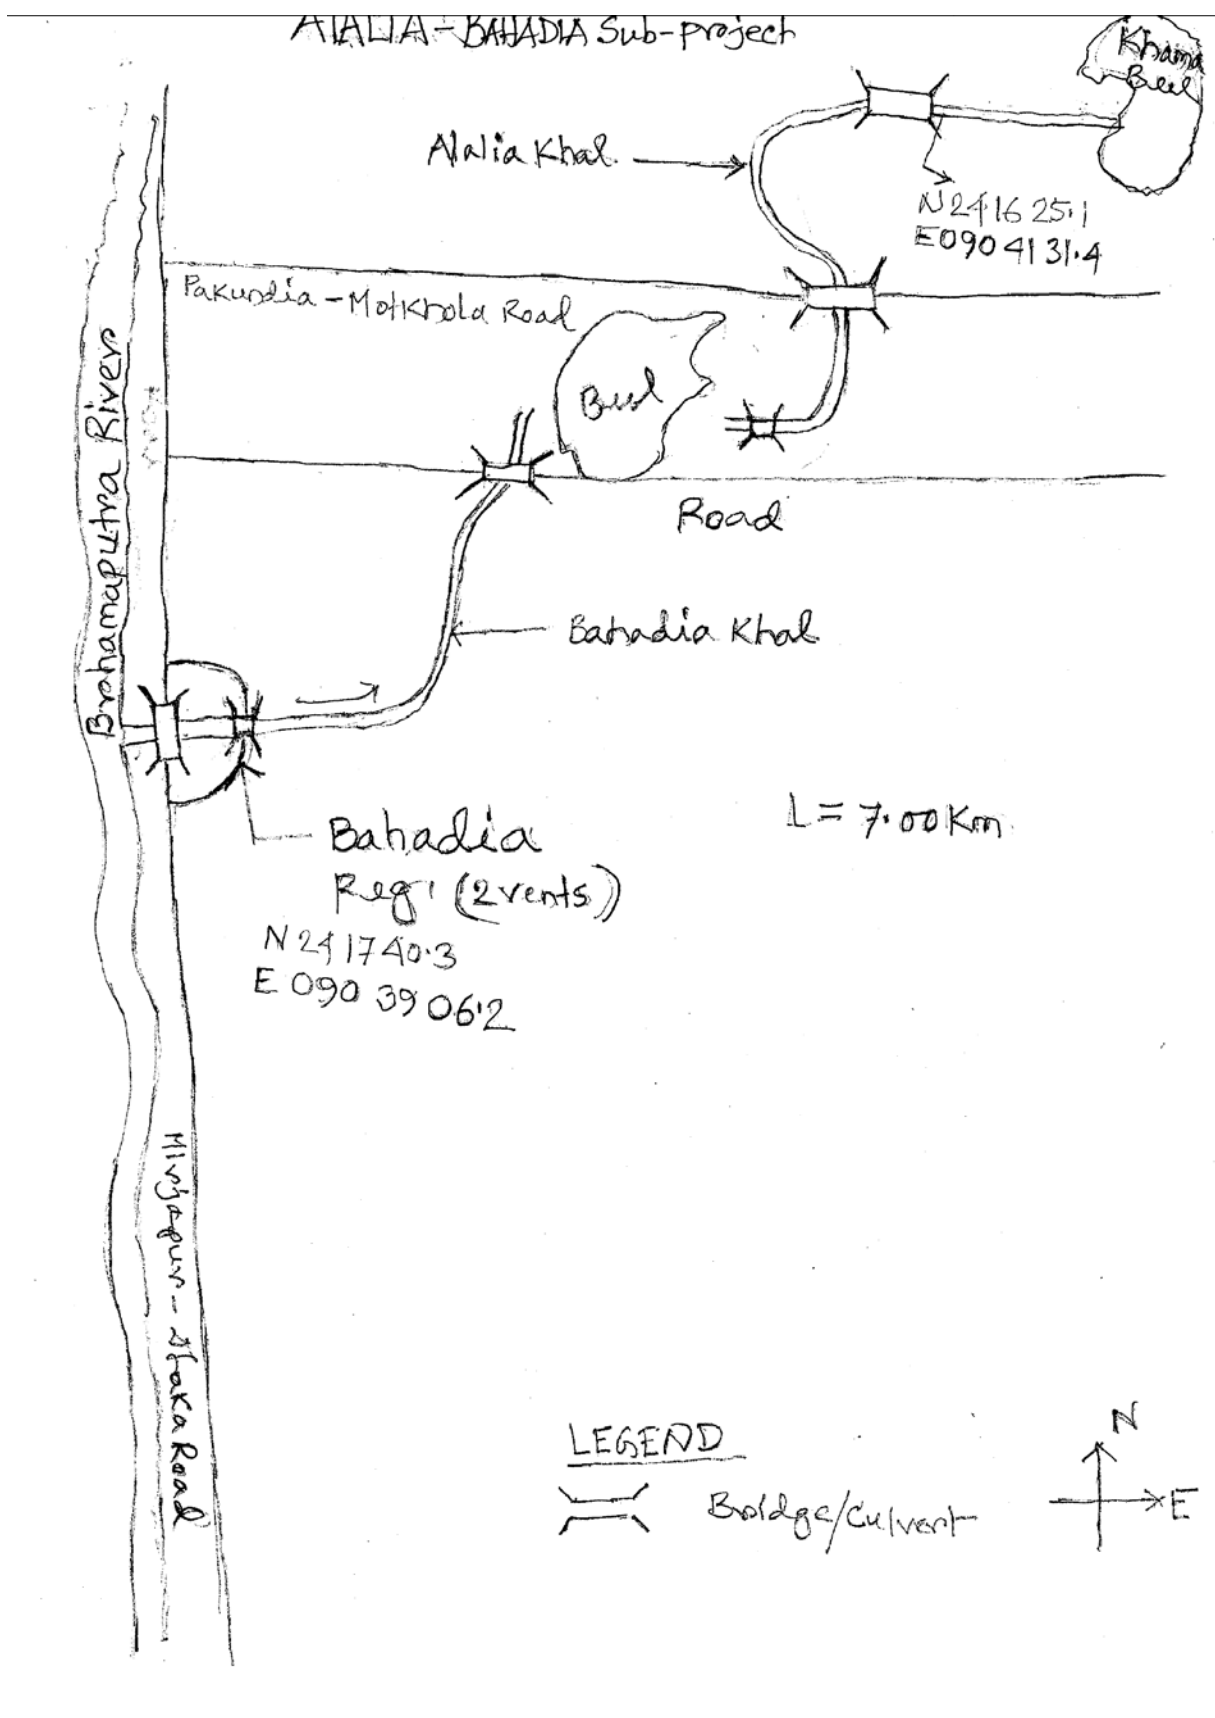 ATALIA - BAHADIA Sub-project
Khama
Beel
Alalia Khal
N 24 16 25.1
E 090 41 31.4
Pakundia - Motkhola Road
Beel
Road
Brahamaputra River
Bahadia Khal
L = 7.00 Km
Bahadia
Reg. (2 vents)
N 24 17 40.3
E 090 39 06.2
Mirjapur - Dhaka Road
LEGEND
Bridge/Culvert
N
E